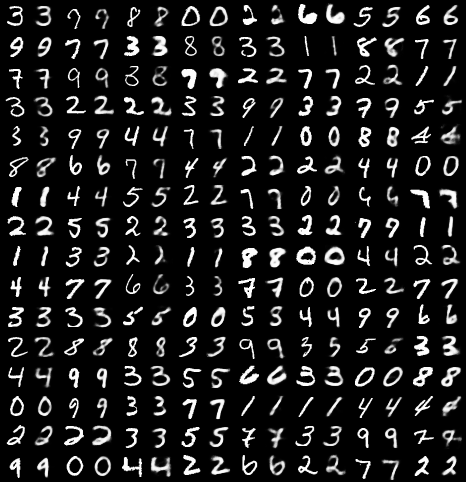 3 3 9 9 8 8 0 0 2 2 6 6 5 5 6 6
9 9 7 7 3 3 8 8 3 3 1 1 8 8 7 7
7 7 9 9 8 8 7 7 2 2 7 7 2 2 1 1
3 3 2 2 2 2 3 3 9 9 3 3 7 9 5 5
3 3 9 9 4 4 7 7 1 1 0 0 8 8 4 4
8 8 6 6 7 7 4 4 2 2 2 2 4 4 0 0
1 1 4 4 5 5 2 2 7 7 0 0 6 7 7
2 2 5 5 2 2 3 3 3 3 2 2 7 9 1 1
1 1 3 3 2 2 1 1 8 8 0 0 4 4 2 2
4 4 7 7 6 6 3 3 7 7 0 0 2 2 7 7
3 3 3 3 5 5 0 0 5 8 4 4 9 9 6 6
2 2 8 8 8 8 3 3 9 9 3 5 5 3 3
4 4 9 9 3 3 5 5 6 6 3 3 0 0 8 8
0 0 9 9 3 3 7 7 1 1 1 1 4 4 4 4
2 2 2 2 3 3 5 5 7 7 3 3 9 9 7
9 9 0 0 4 4 2 2 6 6 2 2 7 7 2 2